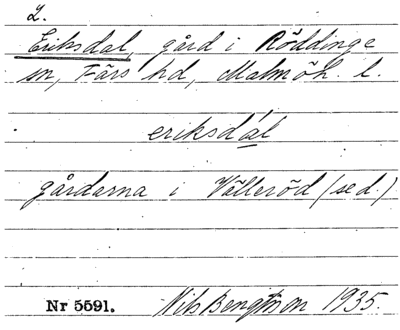 2.
Eriksdal, gård i Röddinge
sn, Färs hd, Malmöh. l.
eriksdál
gårdarna i Välleröd (sed.)
Nr 5591. Nils Bengtson 1935.